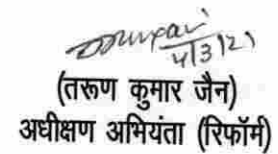 4/3/21
(तरूण कुमार जैन)
अधीक्षण अभियंता (रिफॉर्म)